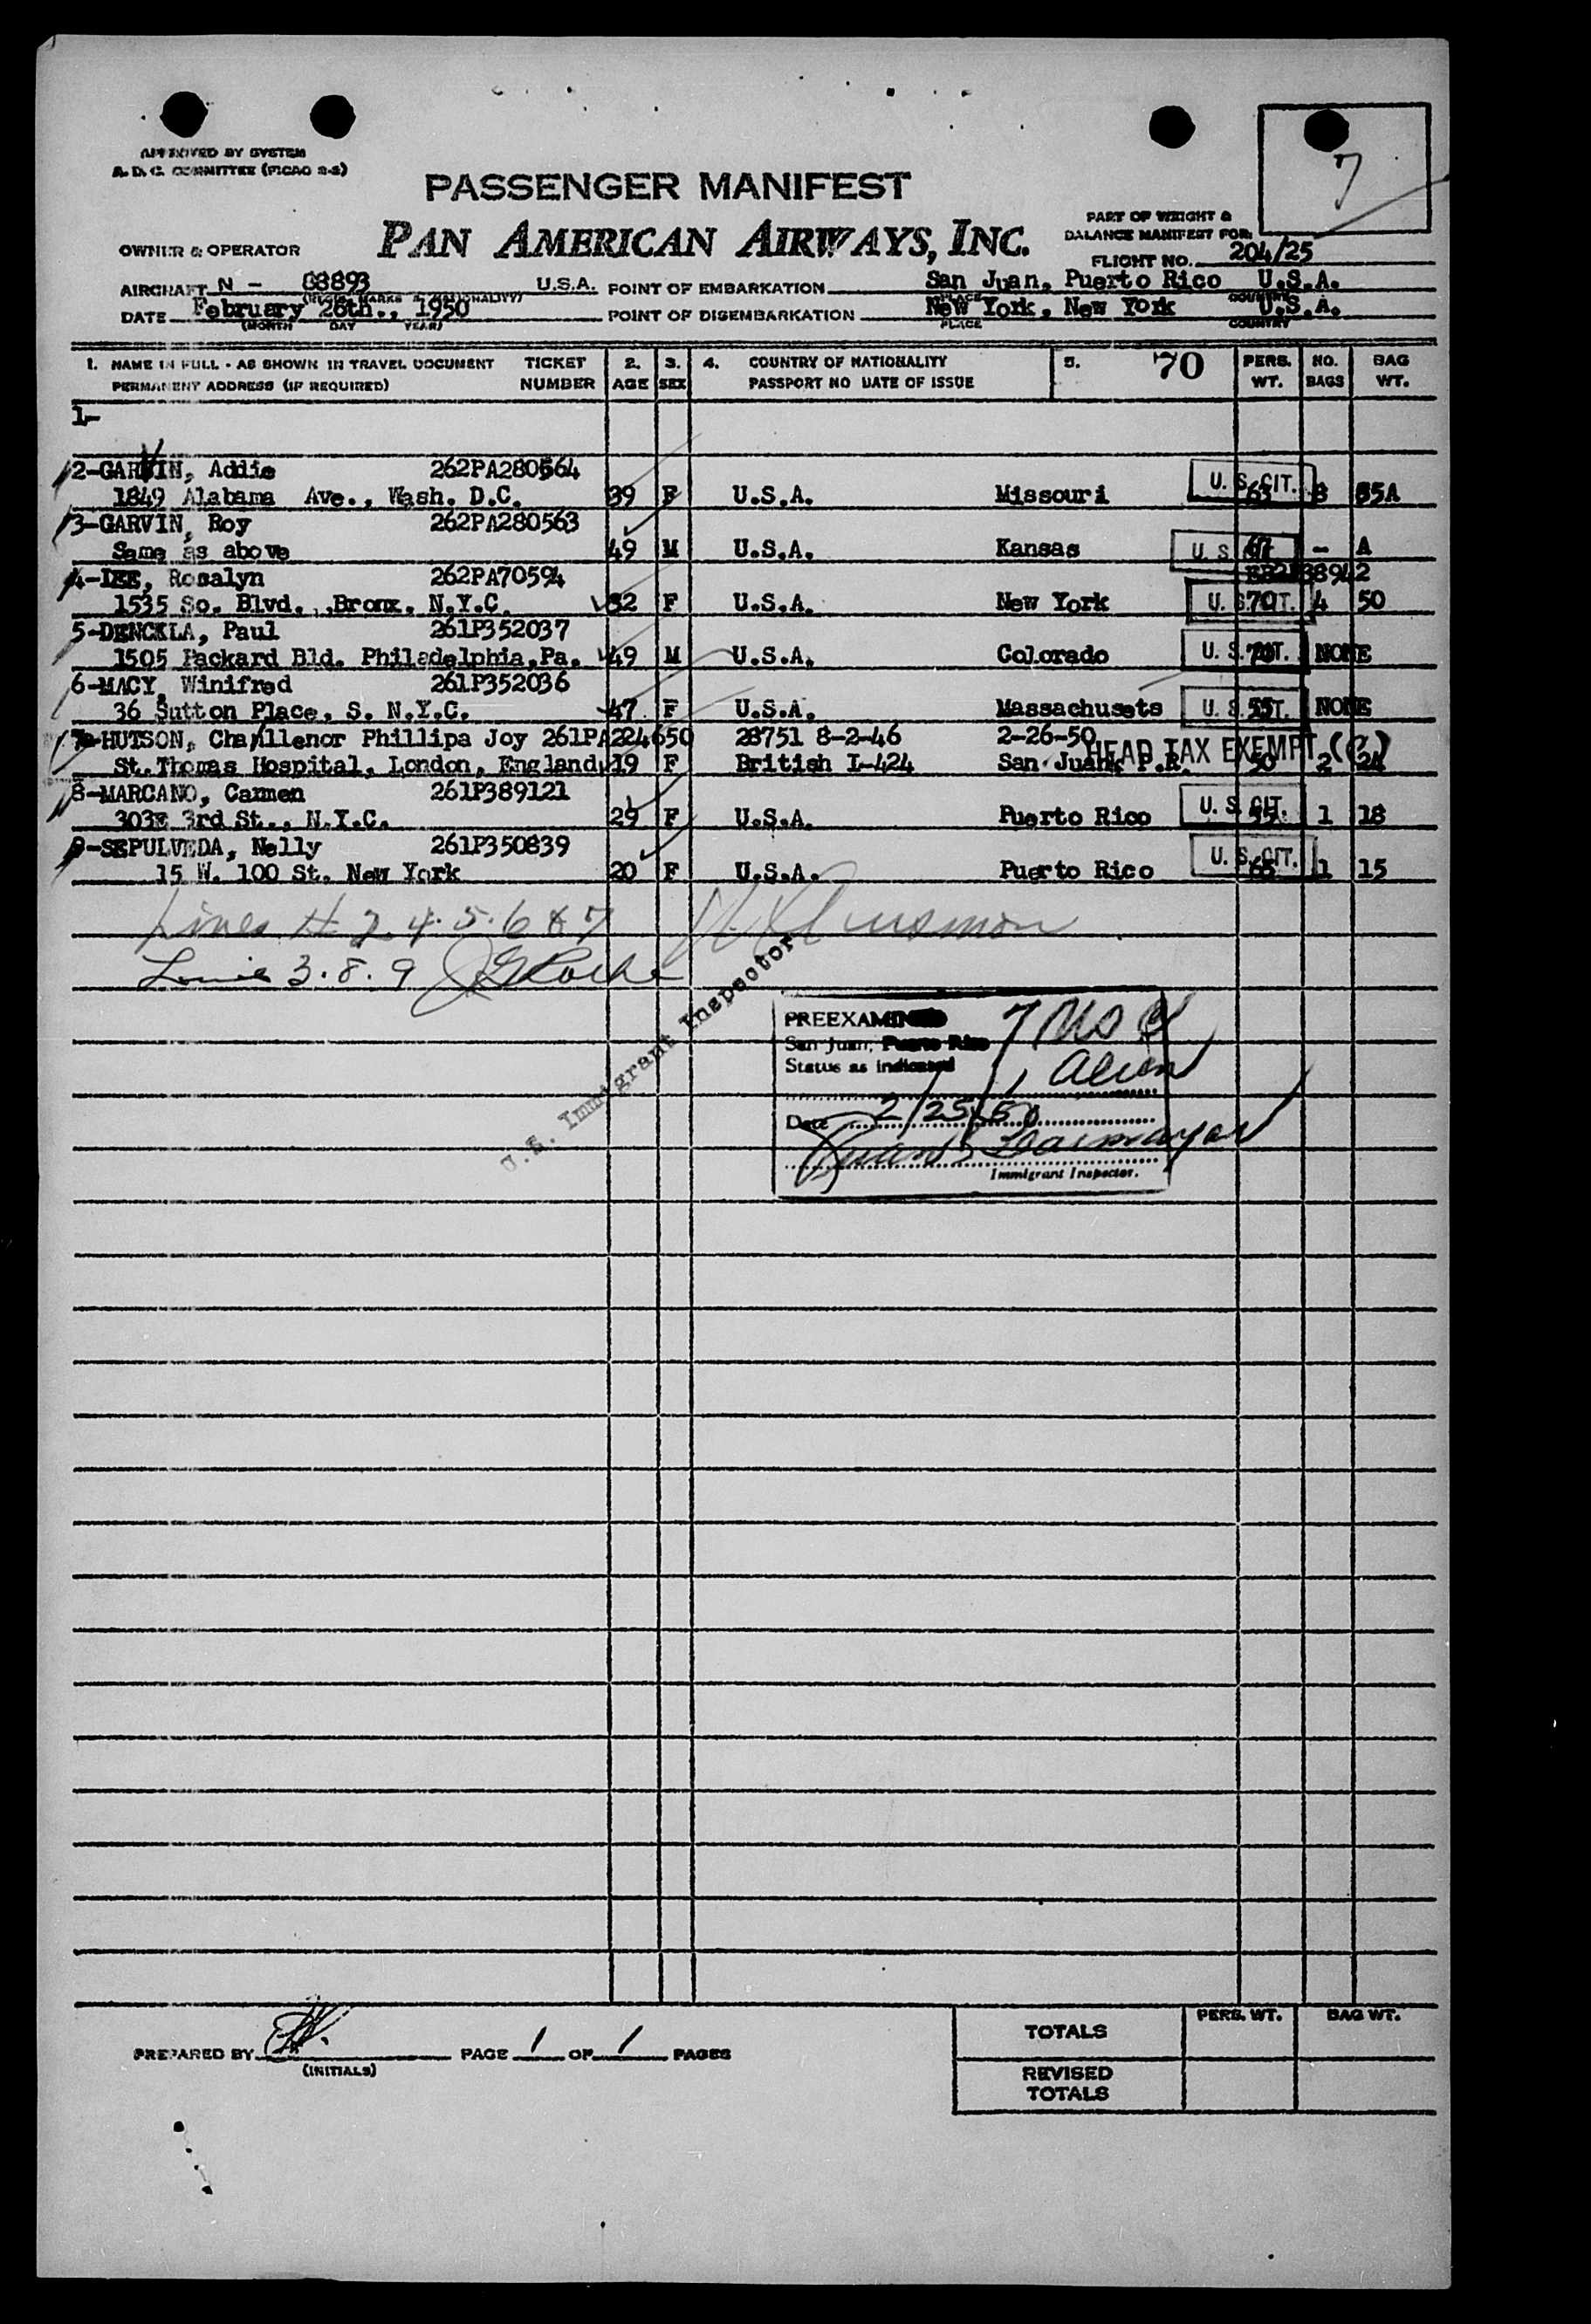 APPROVED BY SYSTEM
A. D. C. COMMITTEE (PICAO 2-3)
7
PASSENGER MANIFEST
PAN AMERICAN AIRWAYS, INC.
PART OF WEIGHT &
BALANCE MANIFEST FOR:
OWNER & OPERATOR
FLIGHT NO. 204/25
AIRCRAFT N - 88893 U.S.A. POINT OF EMBARKATION San Juan, Puerto Rico U.S.A.
(REGIS. MARKS & NATIONALITY) PLACE COUNTRY
DATE February 26th., 1950 POINT OF DISEMBARKATION New York, New York U.S.A.
(MONTH DAY YEAR) PLACE COUNTRY
1. NAME IN FULL - AS SHOWN IN TRAVEL DOCUMENT TICKET 2. 3. 4. COUNTRY OF NATIONALITY 5. 70 PERS. NO. BAG
PERMANENT ADDRESS (IF REQUIRED) NUMBER AGE SEX PASSPORT NO DATE OF ISSUE WT. BAGS WT.
1-
2-GARVIN, Addie 262PA280564
1849 Alabama Ave., Wash. D.C. 39 F U.S.A. Missouri U. S. CIT. 63 85A
3-GARVIN, Roy 262PA280563
Same as above 49 M U.S.A. Kansas U. S. - A
4-LEE, Rosalyn 262PA70594
1535 So. Blvd. ,Bronx, N.Y.C. 32 F U.S.A. New York U. S. CIT. 70 4 50
5-DENCKLA, Paul 261P352037
1505 Packard Bld. Philadelphia,Pa. 49 M U.S.A. Colorado U. S. CIT. NONE
6-MACY, Winifred 261P352036
36 Sutton Place, S. N.Y.C. 47 F U.S.A. Massachusets U. S. CIT. 55 NONE
7-HUTSON, Challenor Phillipa Joy 261PA224650 28751 8-2-46 2-26-50
HEAD TAX EXEMPT
St.Thomas Hospital, London, England 19 F British I-424 San Juan, P.R. 50 2 24
8-MARCANO, Carmen 261P389121
303E 3rd St., N.Y.C. 29 F U.S.A. Puerto Rico U. S. CIT. 1 18
9-SEPULVEDA, Nelly 261P350839
15 W. 100 St. New York 20 F U.S.A. Puerto Rico U. S. CIT. 65 1 15
Lines # 2. 4. 5. 6 & 7
3. 8. 9
U.S. Immigrant Inspector
PREEXAMINED 7 US C
San Juan, Puerto Rico
Status as indicated 1 Alien
Date 2/25/50
Immigrant Inspector.
PREPARED BY PAGE 1 OF 1 PAGES
(INITIALS)
TOTALS PERS. WT. BAG WT.
REVISED
TOTALS